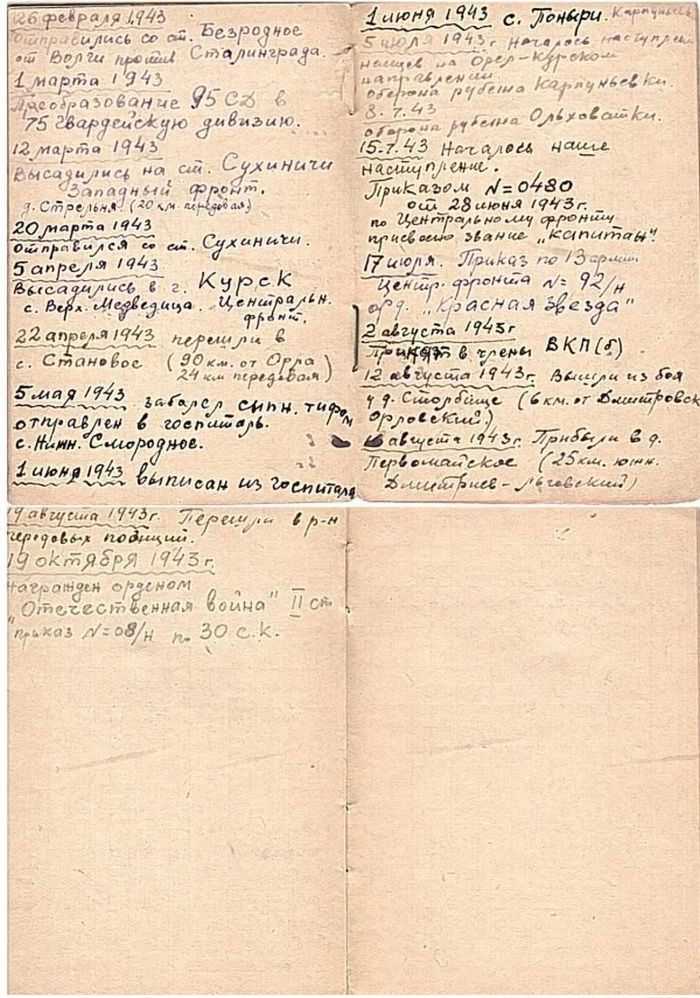 26 февраля 1943
Отправились со ст. Безродное
от Волги против Сталинграда.
1 марта 1943
Преобразование 95 СД в
75 гвардейскую дивизию.
12 марта 1943
Высадились на ст. Сухиничи
Западный фронт.
д. Стрельня. (20 км. передовая)
20 марта 1943
отправился со ст. Сухиничи.
5 апреля 1943
Высадились в г. Курск
с. Верх. Медведица. Центральн.
фронт.
22 апреля 1943 перешли в
с. Становое (90 км. от Орла
24 км передовая)
5 мая 1943 заболел сыпн. тифом
отправлен в госпиталь.
с. Нижн. Смородное.
1 июня 1943 выписан из госпиталя
1 июня 1943 с. Поныри.
5 июля 1943 г. Началось наступлен
немцев на Орел-Курском
направлении
оборона рубежа Карпуньевки.
8.7.43
оборона рубежа Ольховатки.
15.7.43 Началось наше
наступление.
Приказом №=0480
от 28 июня 1943 г.
по Центральному фронту
присвоено звание „Капитан".
17 июля. Приказ по 13 армии
Центр. фронта №= 92/н
орд. „Красная звезда"
2 августа 1943 г
в члены ВКП(б)
12 августа 1943 г. Вышли из боя
у д. Столбище (6 км. от Дмитровск
Орловский.)
августа 1943 г. Прибыли в д.
Первомайское (25 км. южн.
Дмитриев-Льговский)
августа 1943 г. Перешли в р-н
передовых позиций.
19 октября 1943 г.
Награжден орденом
"Отечественная война" II ст
приказ №=08/н по 30 с.к.